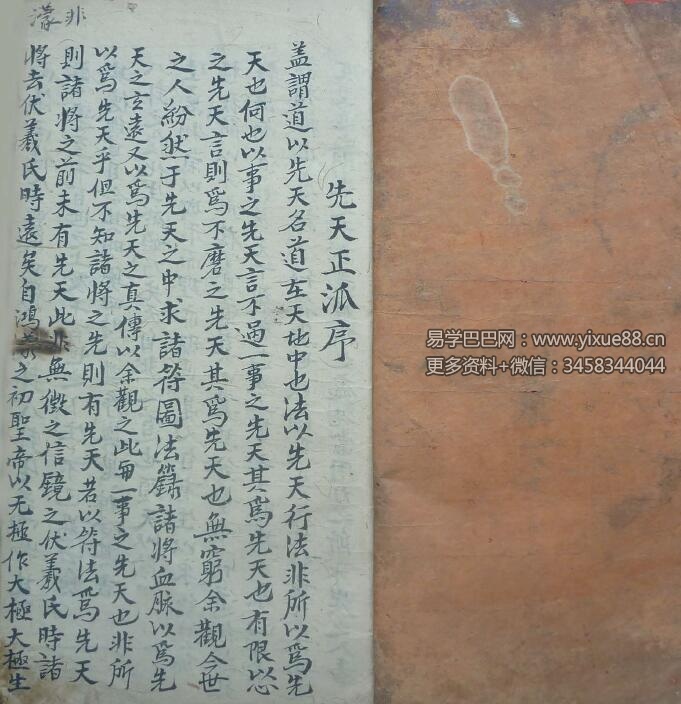 先天正派序
盖謂道以先天名道在天地中也法以先天行法非所以爲先
天也何也以事之先天言不過一事之先天其爲先天也有限以心
之先天言則爲不磨之先天其爲先天也無窮余觀今世
之人紛然于先天之中求諸符圖法籙諸將血脉以爲先
天之玄遠又以爲先天之真傳以余觀之此毎一事之先天也非所
以爲先天乎但不知諸將之先則有先天若以符法爲先天
則諸將之前未有先天此非無徴之信騐之伏羲氏時諸
將去伏羲氏時遠矣自鴻蒙之初聖帝以无極作大極大極生
非
濛
易学巴巴网：www.yixue88.cn
更多资料+微信：3458344044